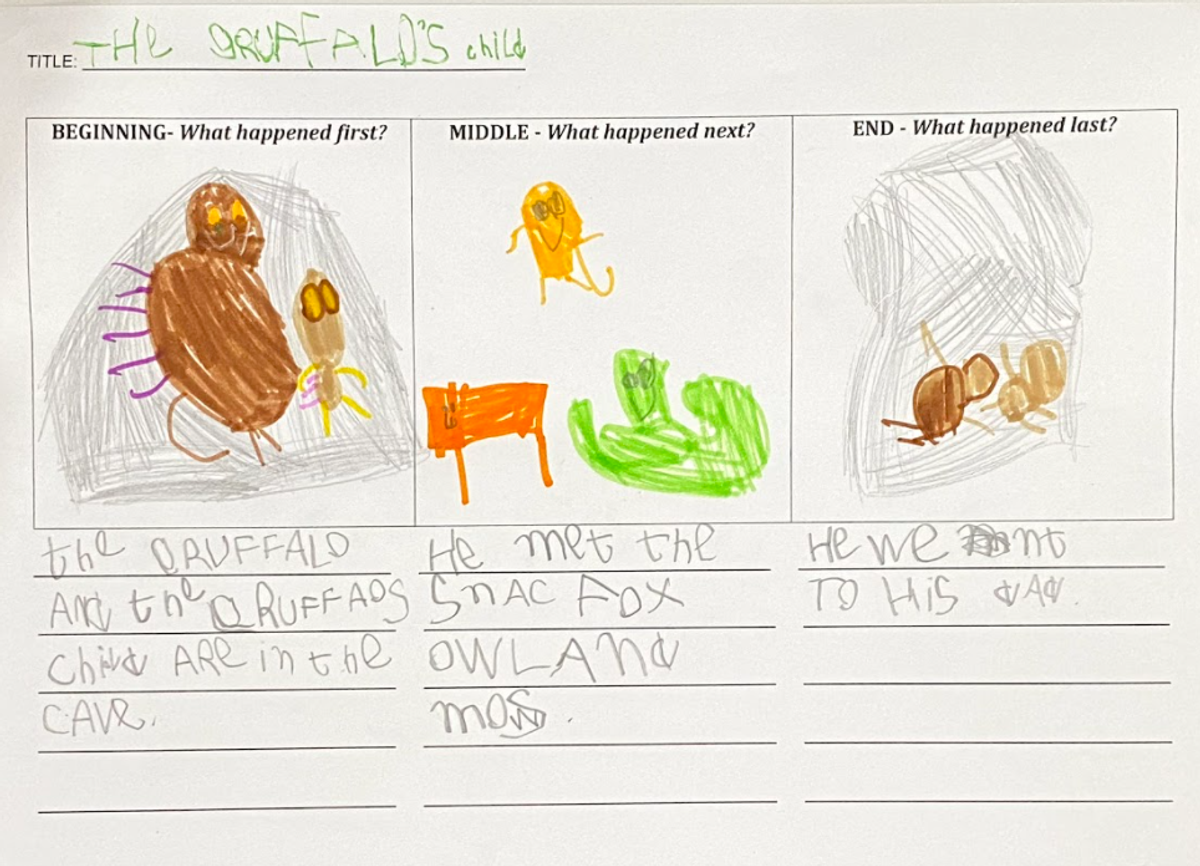 TITLE: THe GRUFFALO'S child
BEGINNING- What happened first?
MIDDLE - What happened next?
END - What happened last?
the GRUFFALO
And the GRUFFAOS
Child ARe in the
CAVe.
He met the
SnAC FOX
OWL AND
mos.
He went
TO HiS dAd.